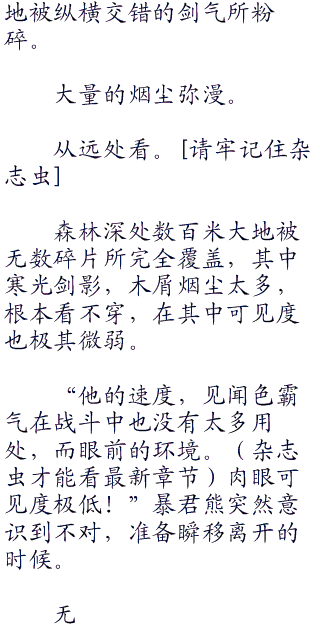 地被纵横交错的剑气所粉
碎。
大量的烟尘弥漫。
从远处看。[请牢记住杂
志虫]
森林深处数百米大地被
无数碎片所完全覆盖，其中
寒光剑影，木屑烟尘太多，
根本看不穿，在其中可见度
也极其微弱。
“他的速度，见闻色霸
气在战斗中也没有太多用
处，而眼前的环境。（杂志
虫才能看最新章节）肉眼可
见度极低！”暴君熊突然意
识到不对，准备瞬移离开的
时候。
无